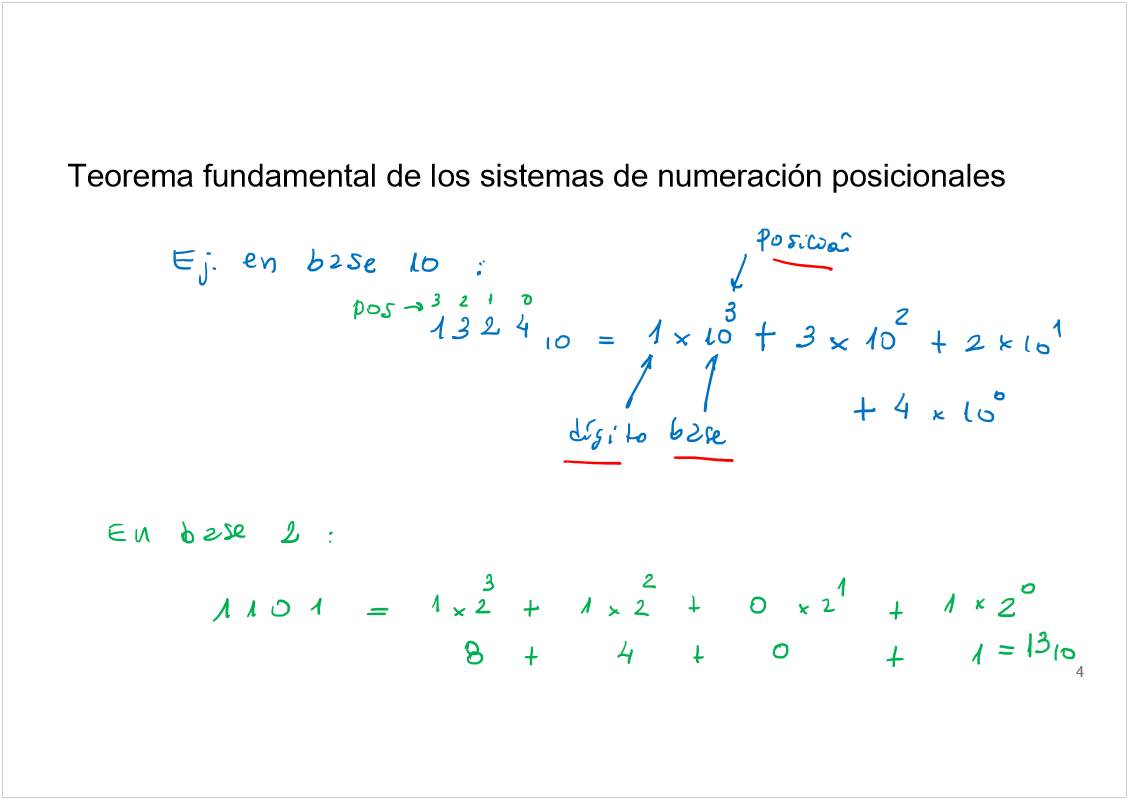 Teorema fundamental de los sistemas de numeración posicionales
posición
Ej. en base 10 :
pos → 3 2 1 0
1 3 2 4 ₁₀ = 1 × 10³ + 3 × 10² + 2 × 10¹
+ 4 × 10⁰
dígito base
En base 2 :
1 1 0 1 = 1 × 2³ + 1 × 2² + 0 × 2¹ + 1 × 2⁰
8 + 4 + 0 + 1 = 13₁₀
4